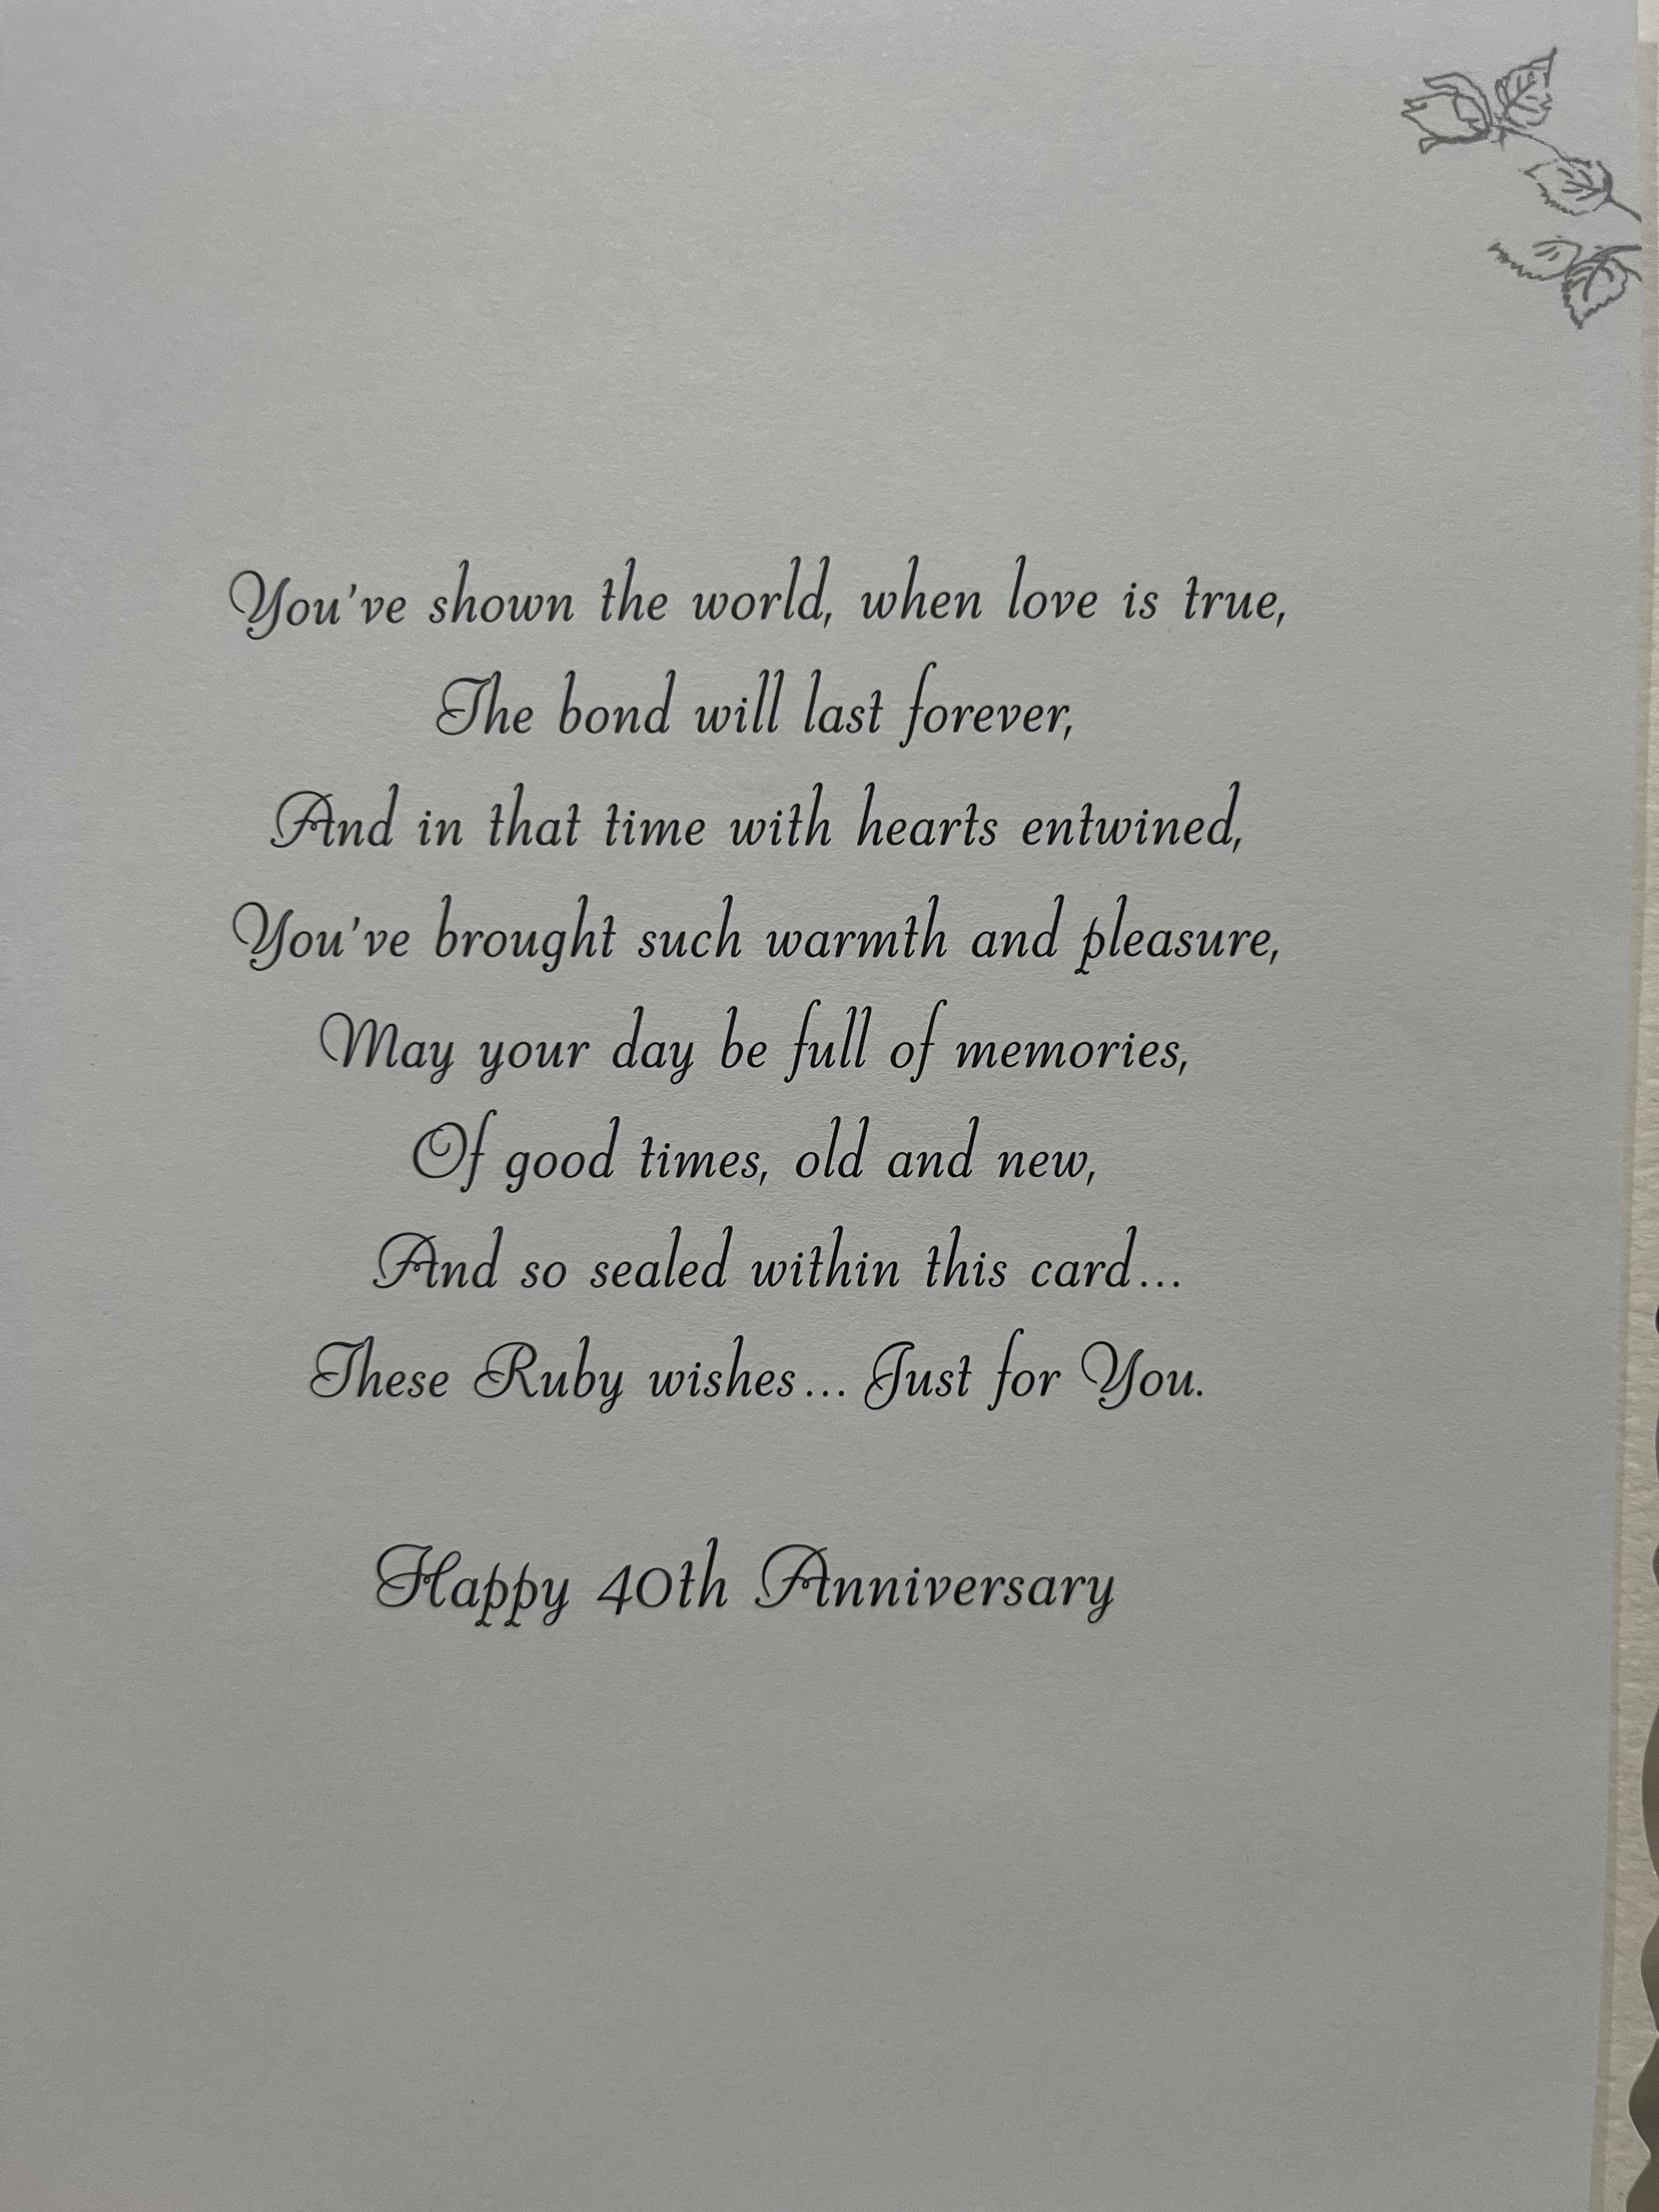 You've shown the world, when love is true,
The bond will last forever,
And in that time with hearts entwined,
You've brought such warmth and pleasure,
May your day be full of memories,
Of good times, old and new,
And so sealed within this card...
These Ruby wishes... Just for You.
Happy 40th Anniversary